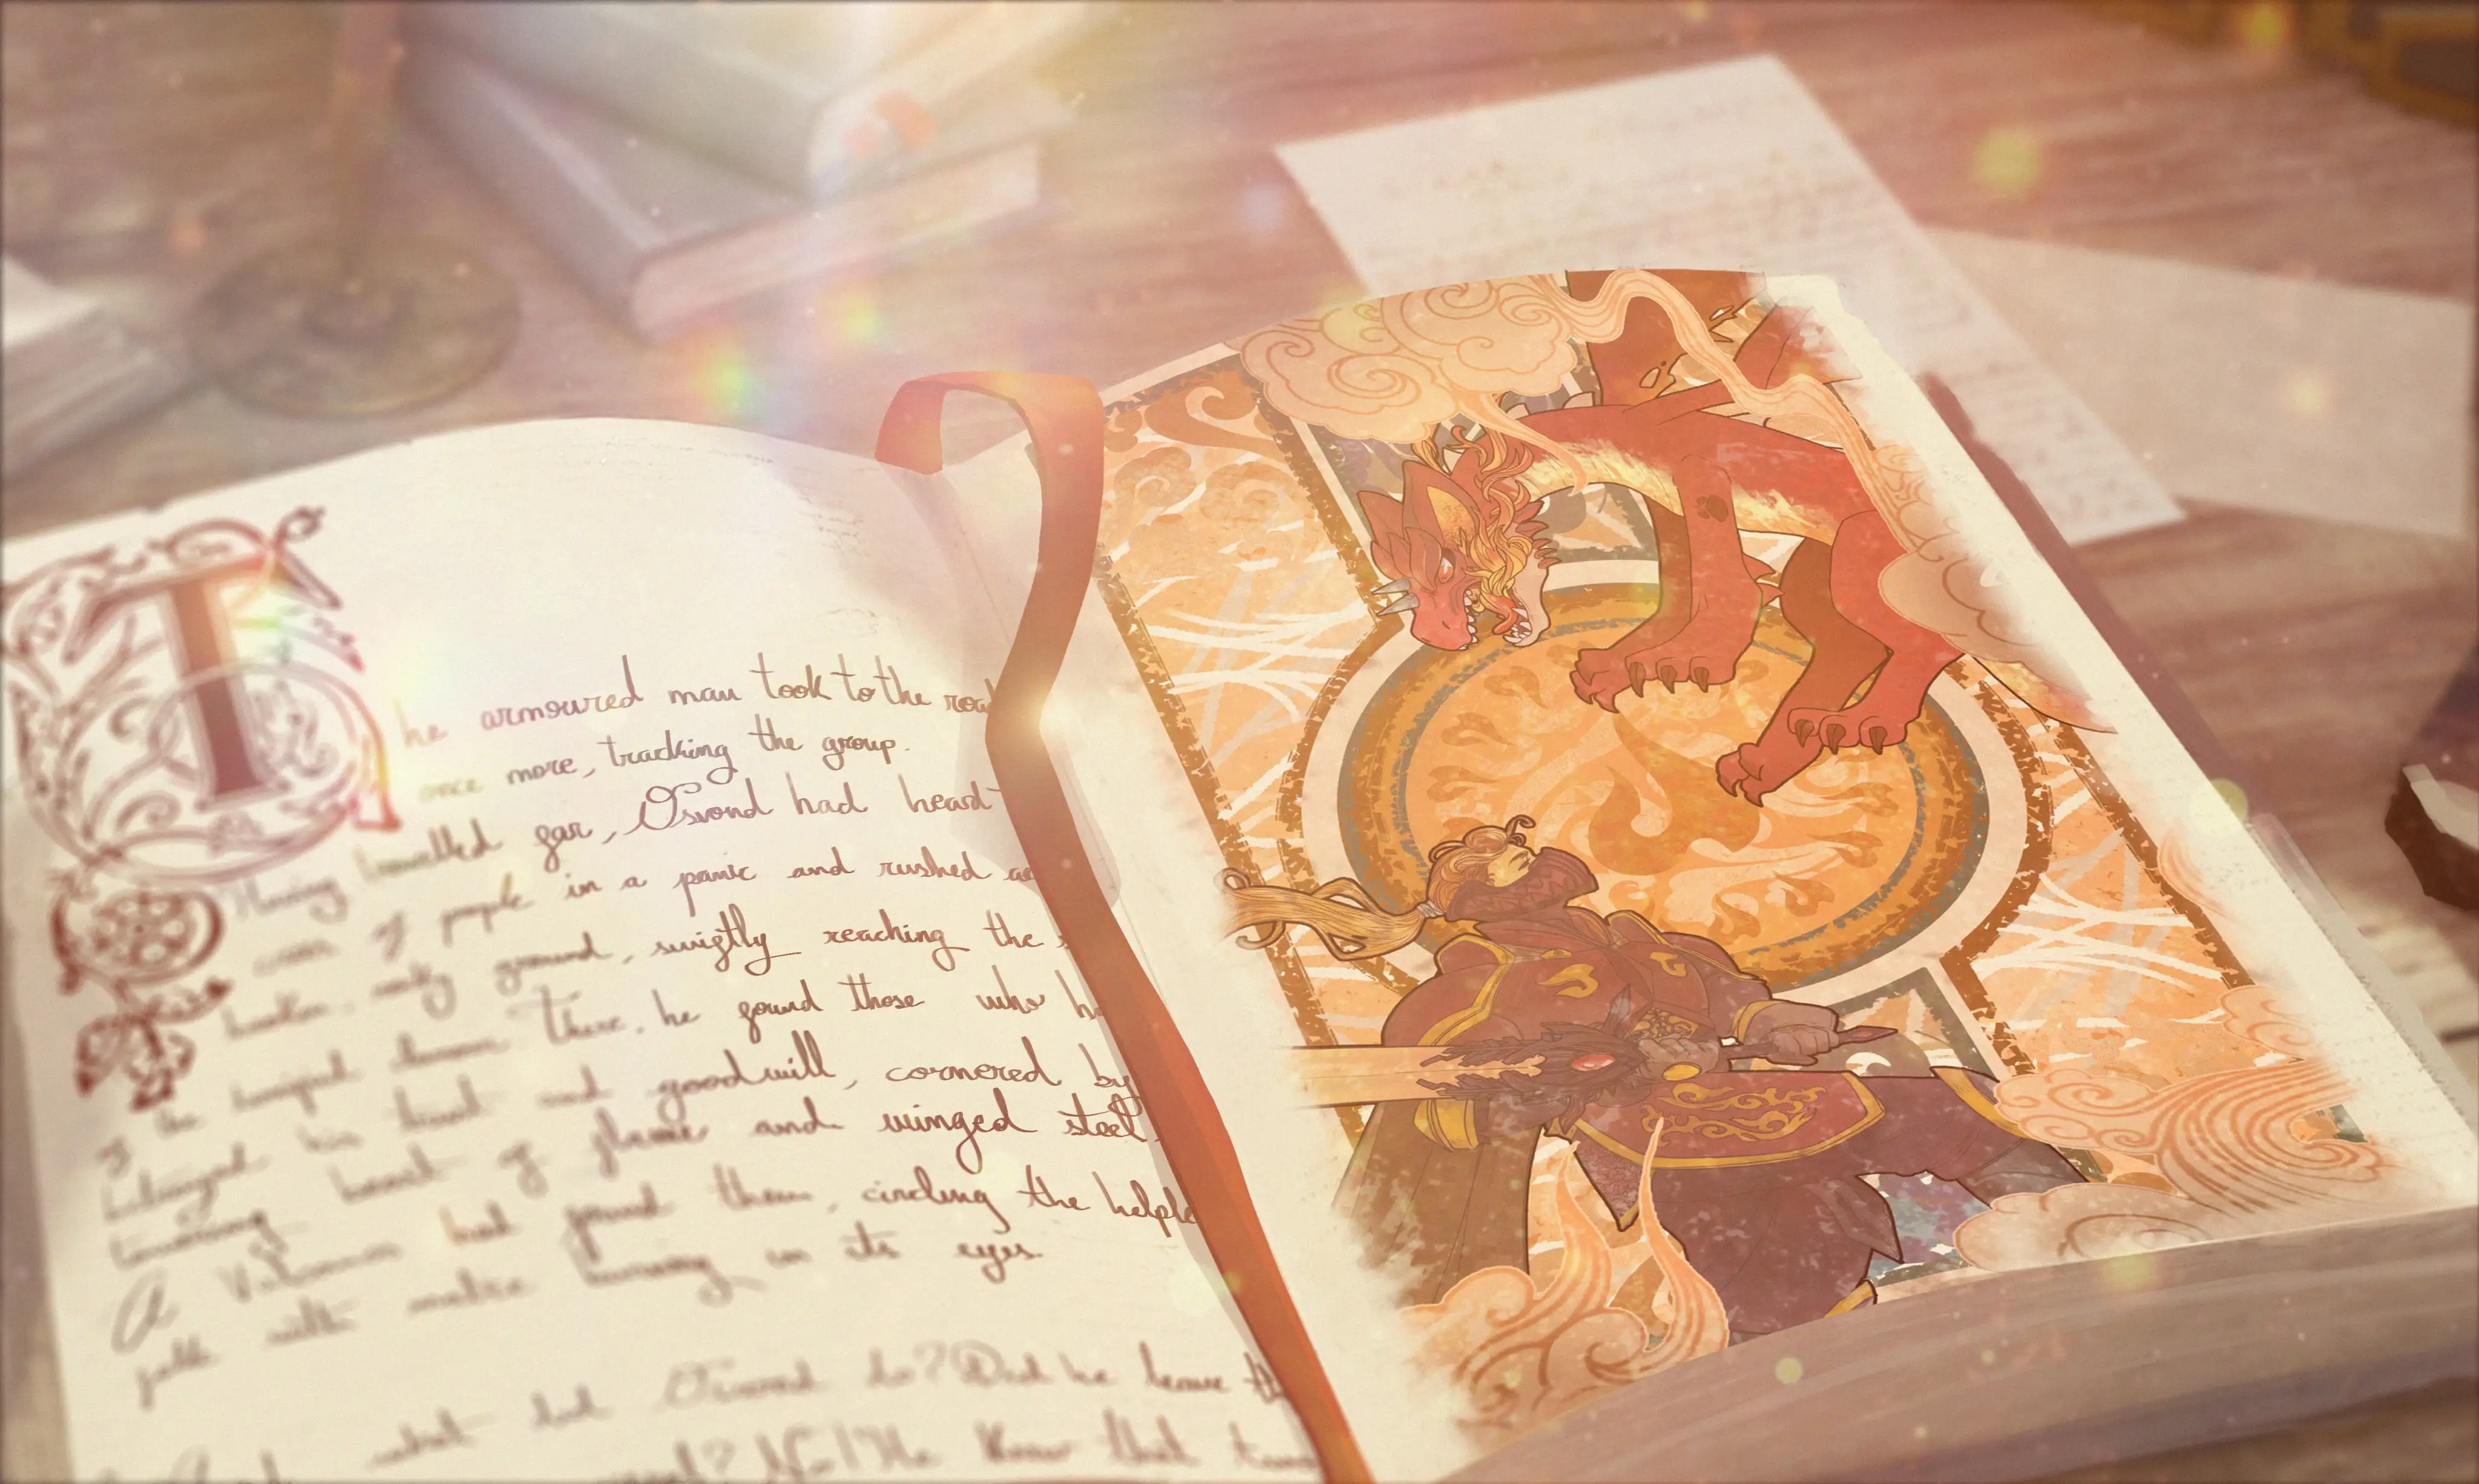 The armoured man took to the road
once more, tracking the group.
Having travelled far, Oswond had heard
cries of people in a panic and rushed
broken, rocky ground, swiftly reaching the
There, he found those who
betrayed his trust and goodwill, cornered by
towering beast of flame and winged steel.
A Volcanis had found them, circling the
with malice burning in its eyes.
what did Oswond do? Did he leave
No! He knew that